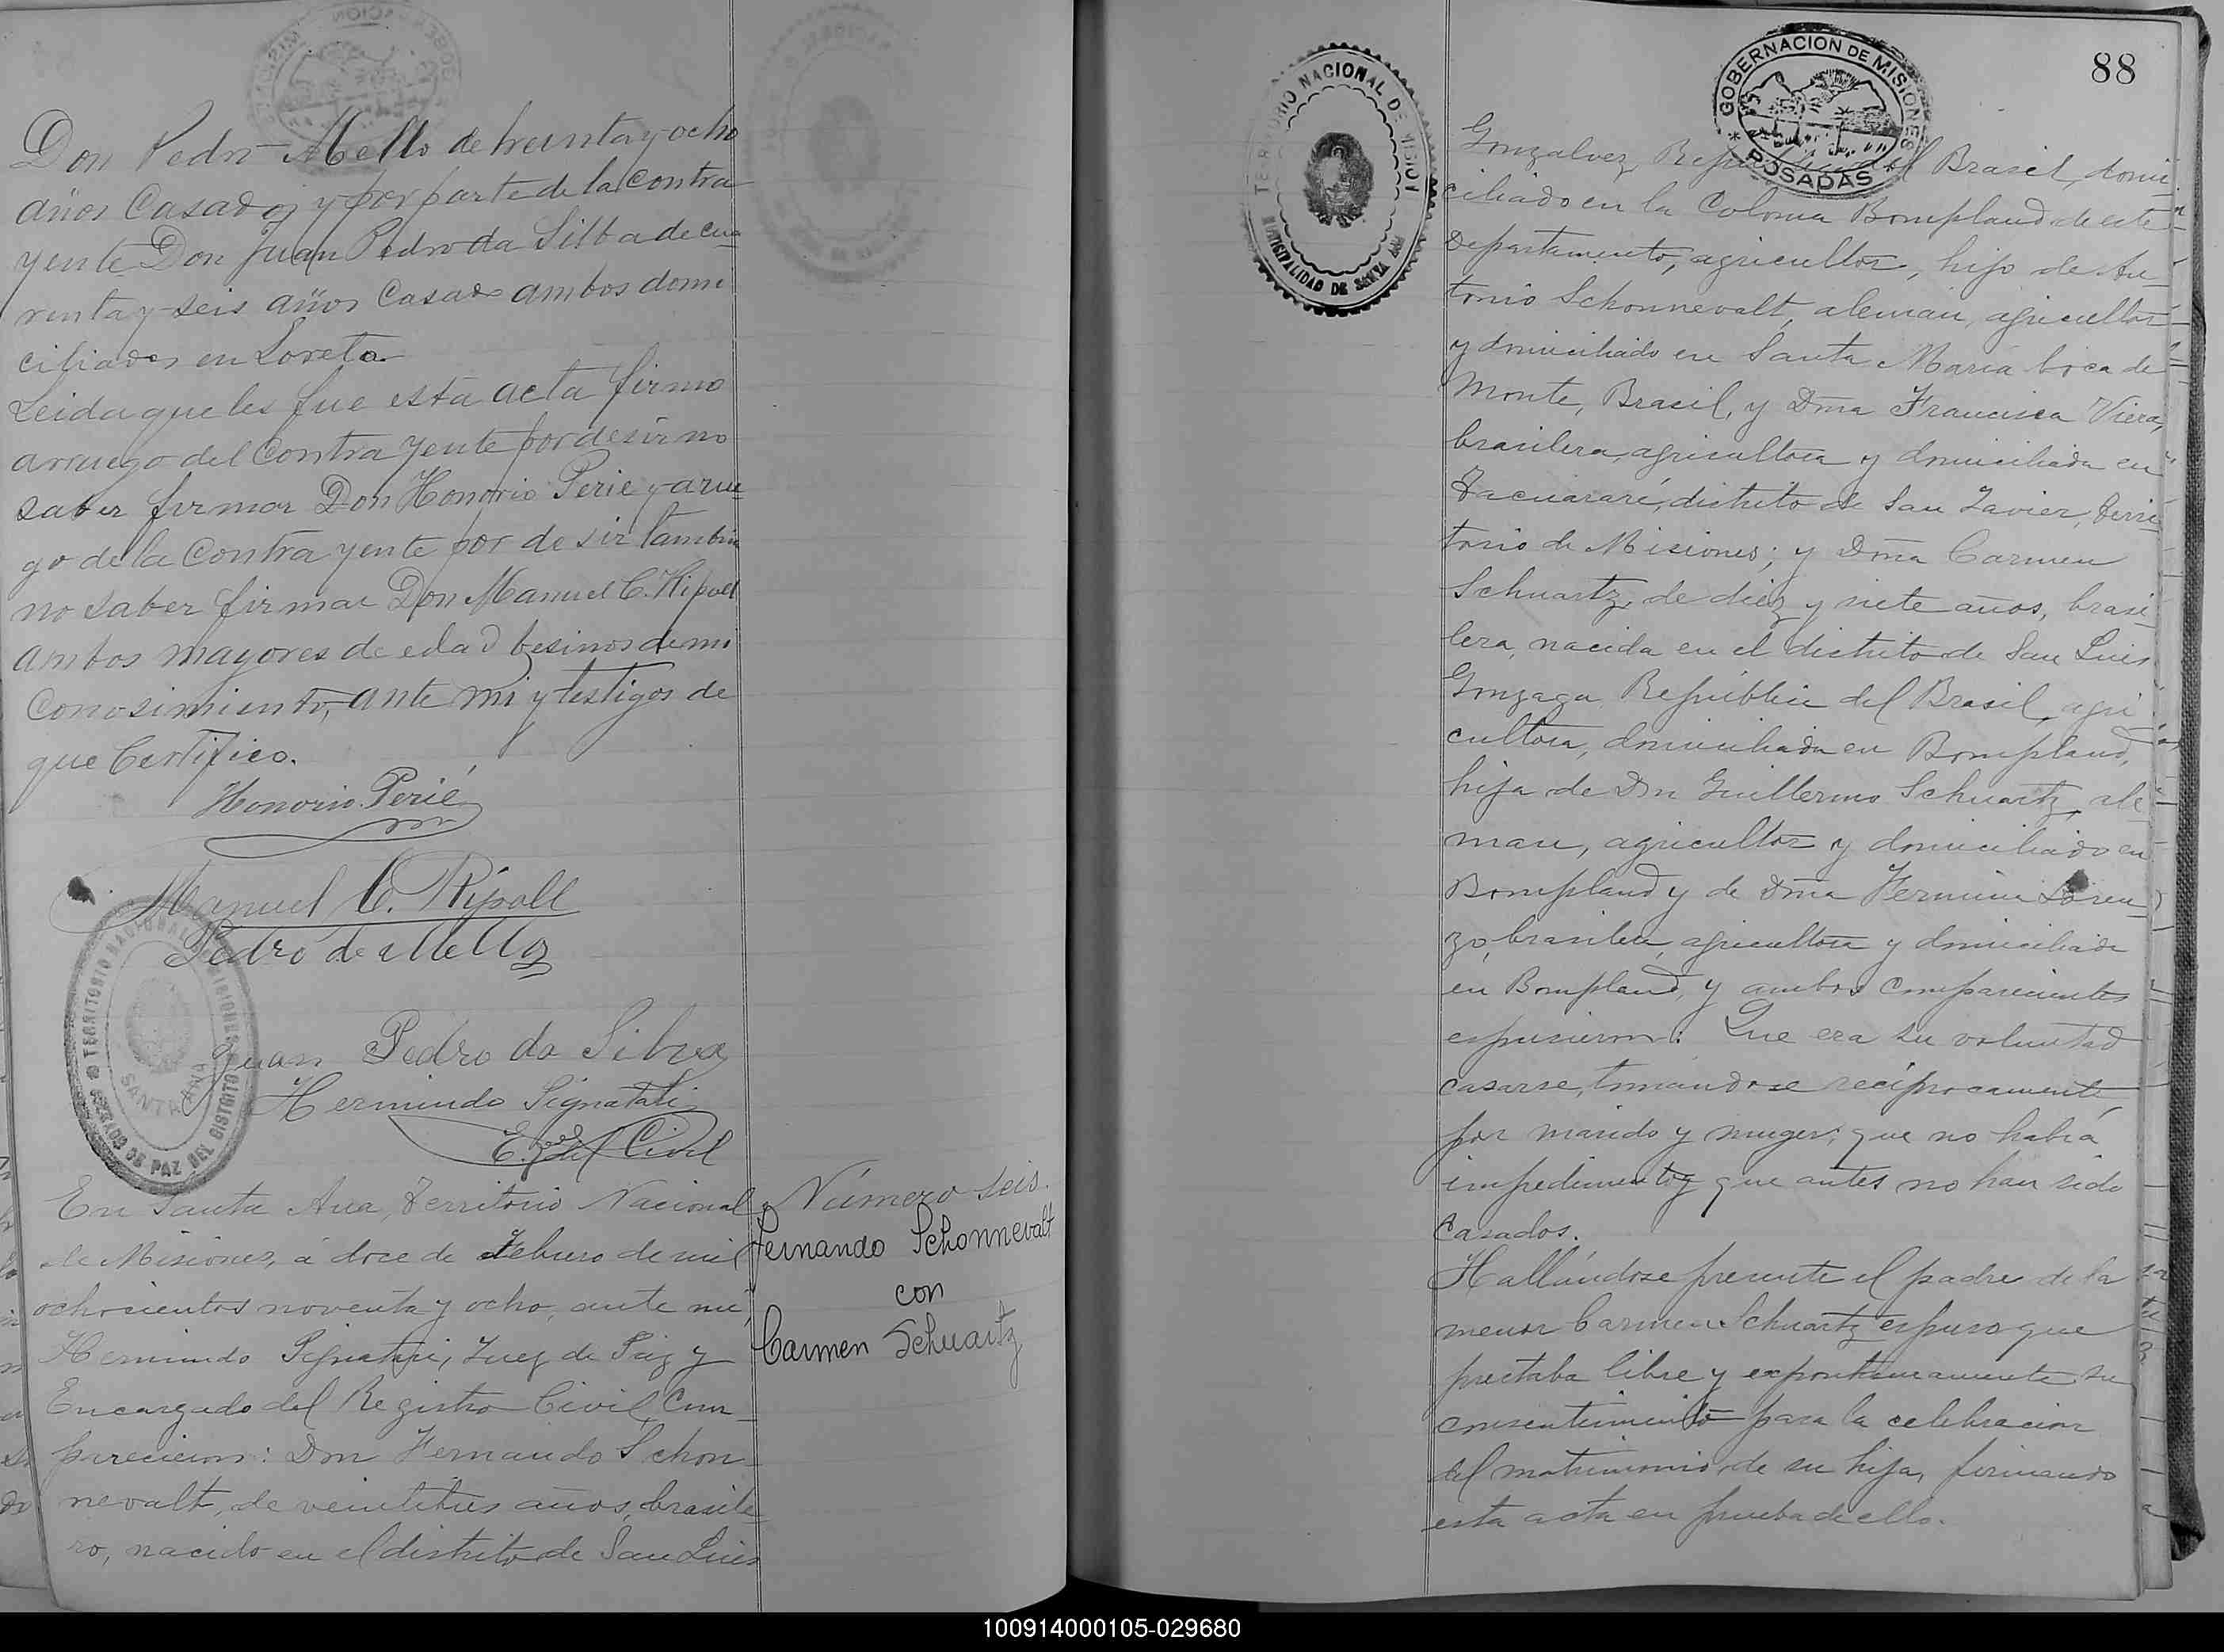 Don Pedro Mello de treinta y ocho
años Casados y por parte de la Contra
yente Don Juan Pedro da Silba de cua
renta y seis años Casado ambos domi
ciliados en Loreto.
Leida que les fue esta acta firmo
arruego del Contrayente por desir no
saber firmar Don Honorio Perie y arue
go de la Contrayente por desir tambien
no saber firmar Don Manuel C. Ripoll
ambos mayores de edad besinos de mi
Conosimiento, ante mi y testigos de
que Certifico.
Honorio Perié
Manuel C. Ripoll
Pedro de Mello
Juan Pedro da Silva
Hermindo Pignatari
Civil
TERRITORIO NACIONAL DE MISIONES
JUZGADO DE PAZ DEL DISTRITO
SANTA ANA
En Santa Ana, Territorio Nacional
de Misiones, á doce de Febrero de mil
ochocientos noventa y ocho, ante mi,
Hermindo Pignatari, Juez de Paz y
Encargado del Registro Civil, Com-
parecieron: Don Fernando Schon-
nevalt, de veintitres años, brasile-
ro, nacido en el distrito de San Luis
Número seis.
Fernando Schonnevalt
con
Carmen Schuartz
TERRITORIO NACIONAL DE MISIONES
MUNICIPALIDAD DE SANTA ANA
GOBERNACION DE MISIONES
POSADAS
88
Gonzalvez, República del Brasil, domi-
ciliado en la Colonia Bompland de este
Departamento, agricultor, hijo de An-
tonio Schonnevalt, aleman, agricultor
y domiciliado en Santa María boca de
Monte, Brasil, y Dña Francisca Viera,
brasilera, agricultora y domiciliada en
Tacuararé, distrito de San Javier, Terri-
torio de Misiones; y Dña Carmen
Schuartz, de diez y siete años, brasi-
lera, nacida en el distrito de San Luis
Gonzaga, República del Brasil, agri-
cultora, domiciliada en Bompland,
hija de Dn Guillermo Schuartz, ale-
man, agricultor y domiciliado en
Bompland y de Dña Fermina Loren-
zo, brasilera, agricultora y domiciliada
en Bompland, y ambos comparecientes
espusieron: Que era su voluntad
casarse, tomandose reciprocamente
por marido y muger; que no había
impedimento y que antes no han sido
casados.
Hallándose presente el padre de la
menor Carmen Schuartz espuso que
prestaba libre y expontaneamente su
consentimiento para la celebracion
del matrimonio de su hija, firmando
esta acta en prueba de ello.
100914000105-029680